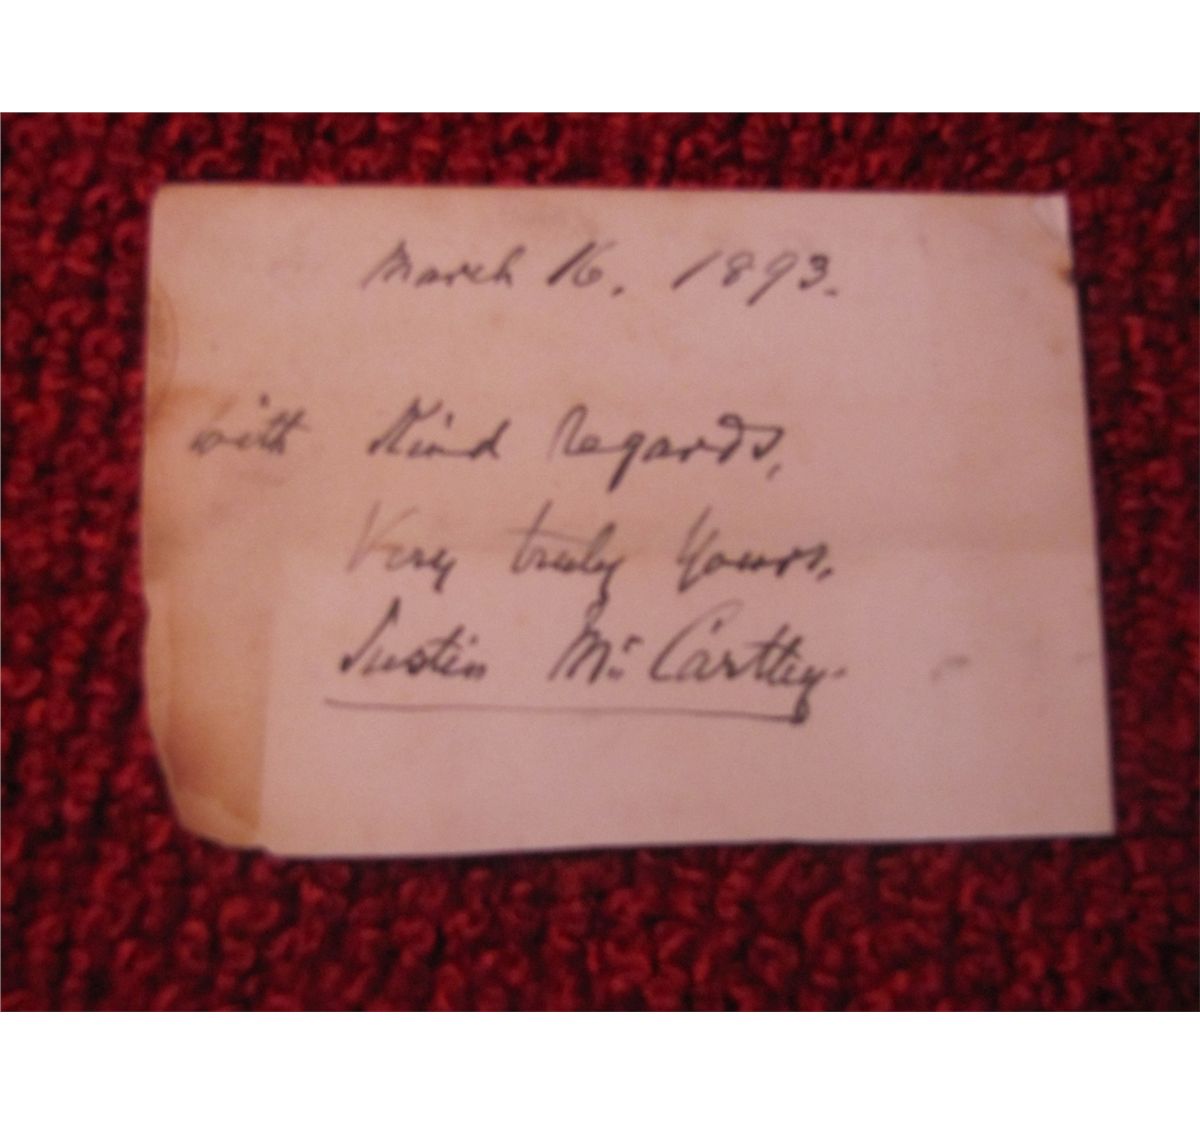 March 16. 1893.
with Kind Regards,
Very truly Yours,
Justin McCarthy.